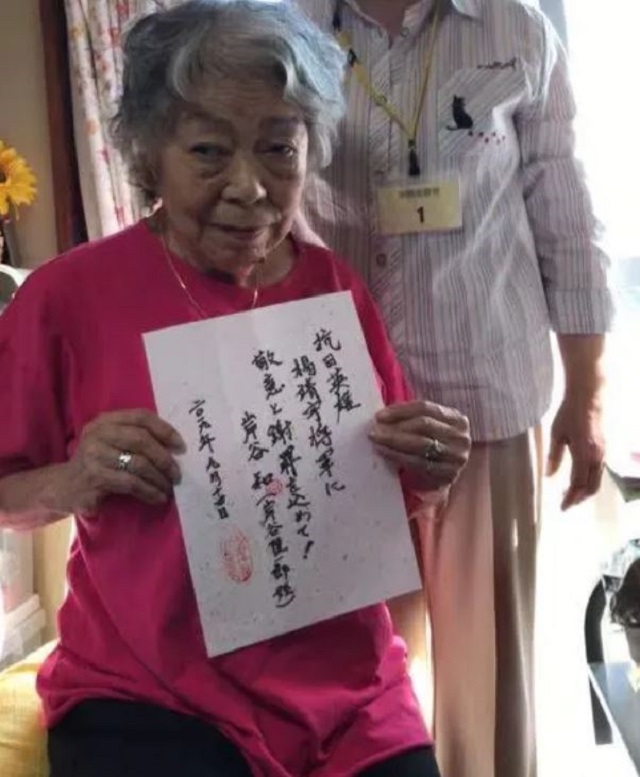 抗日英雄
楊靖宇将軍に
敬意と謝罪を込めて！
岸谷 和（岸谷隆一郎
二〇一九年九月
1